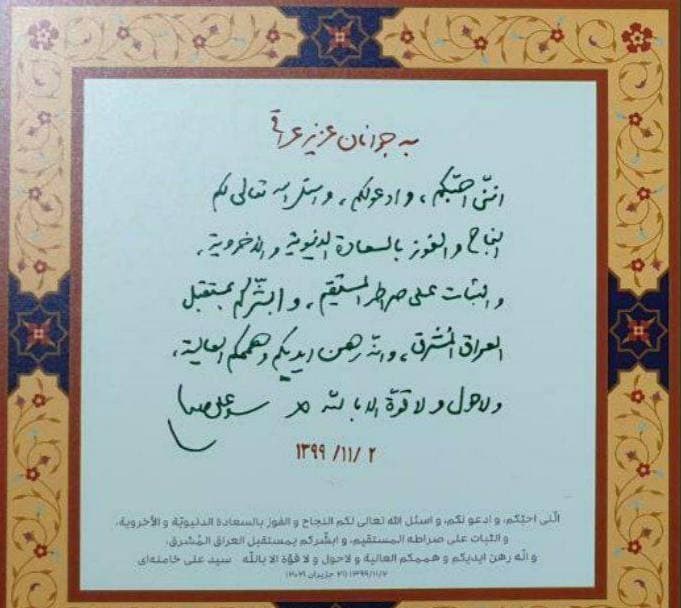 به جوانان عزیز عراقی
اننّی احبّکم، و ادعولکم، و اسئل الله تعالی لکم
النجاح و الفوز بالسعادة الدنیویة و الاخرویة،
و الثبات علی صراطه المستقیم، و ابشّرکم بمستقبل
العراق المُشرق، و انّه رهن ایدیکم و هممکم العالیة،
و لاحول و لا قوّة الا بالله سیدعلی خامنه‌ای
۱۳۹۹/۱۱/۲
انّنی احبّکم، و ادعو لکم، و اسئل الله تعالی لکم النجاح و الفوز بالسعادة الدنیویّة و الأخرویة،
و الثبات علی صراطه المستقیم، و ابشّرکم بمستقبل العراق المُشرق،
و انّه رهن ایدیکم و هممکم العالیة و لاحول و لا قوّة الا باللّه سید علی خامنه‌ای
۱۳۹۹/۱۱/۲ (۲۱ حزیران ۲۰۲۱)